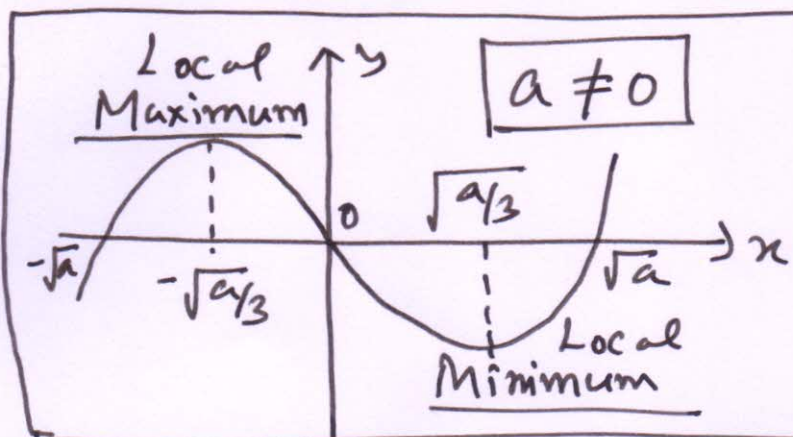 Local
Maximum
y
a ≠ 0
0
√a/3
-√a
-√a/3
√a
x
Local
Minimum